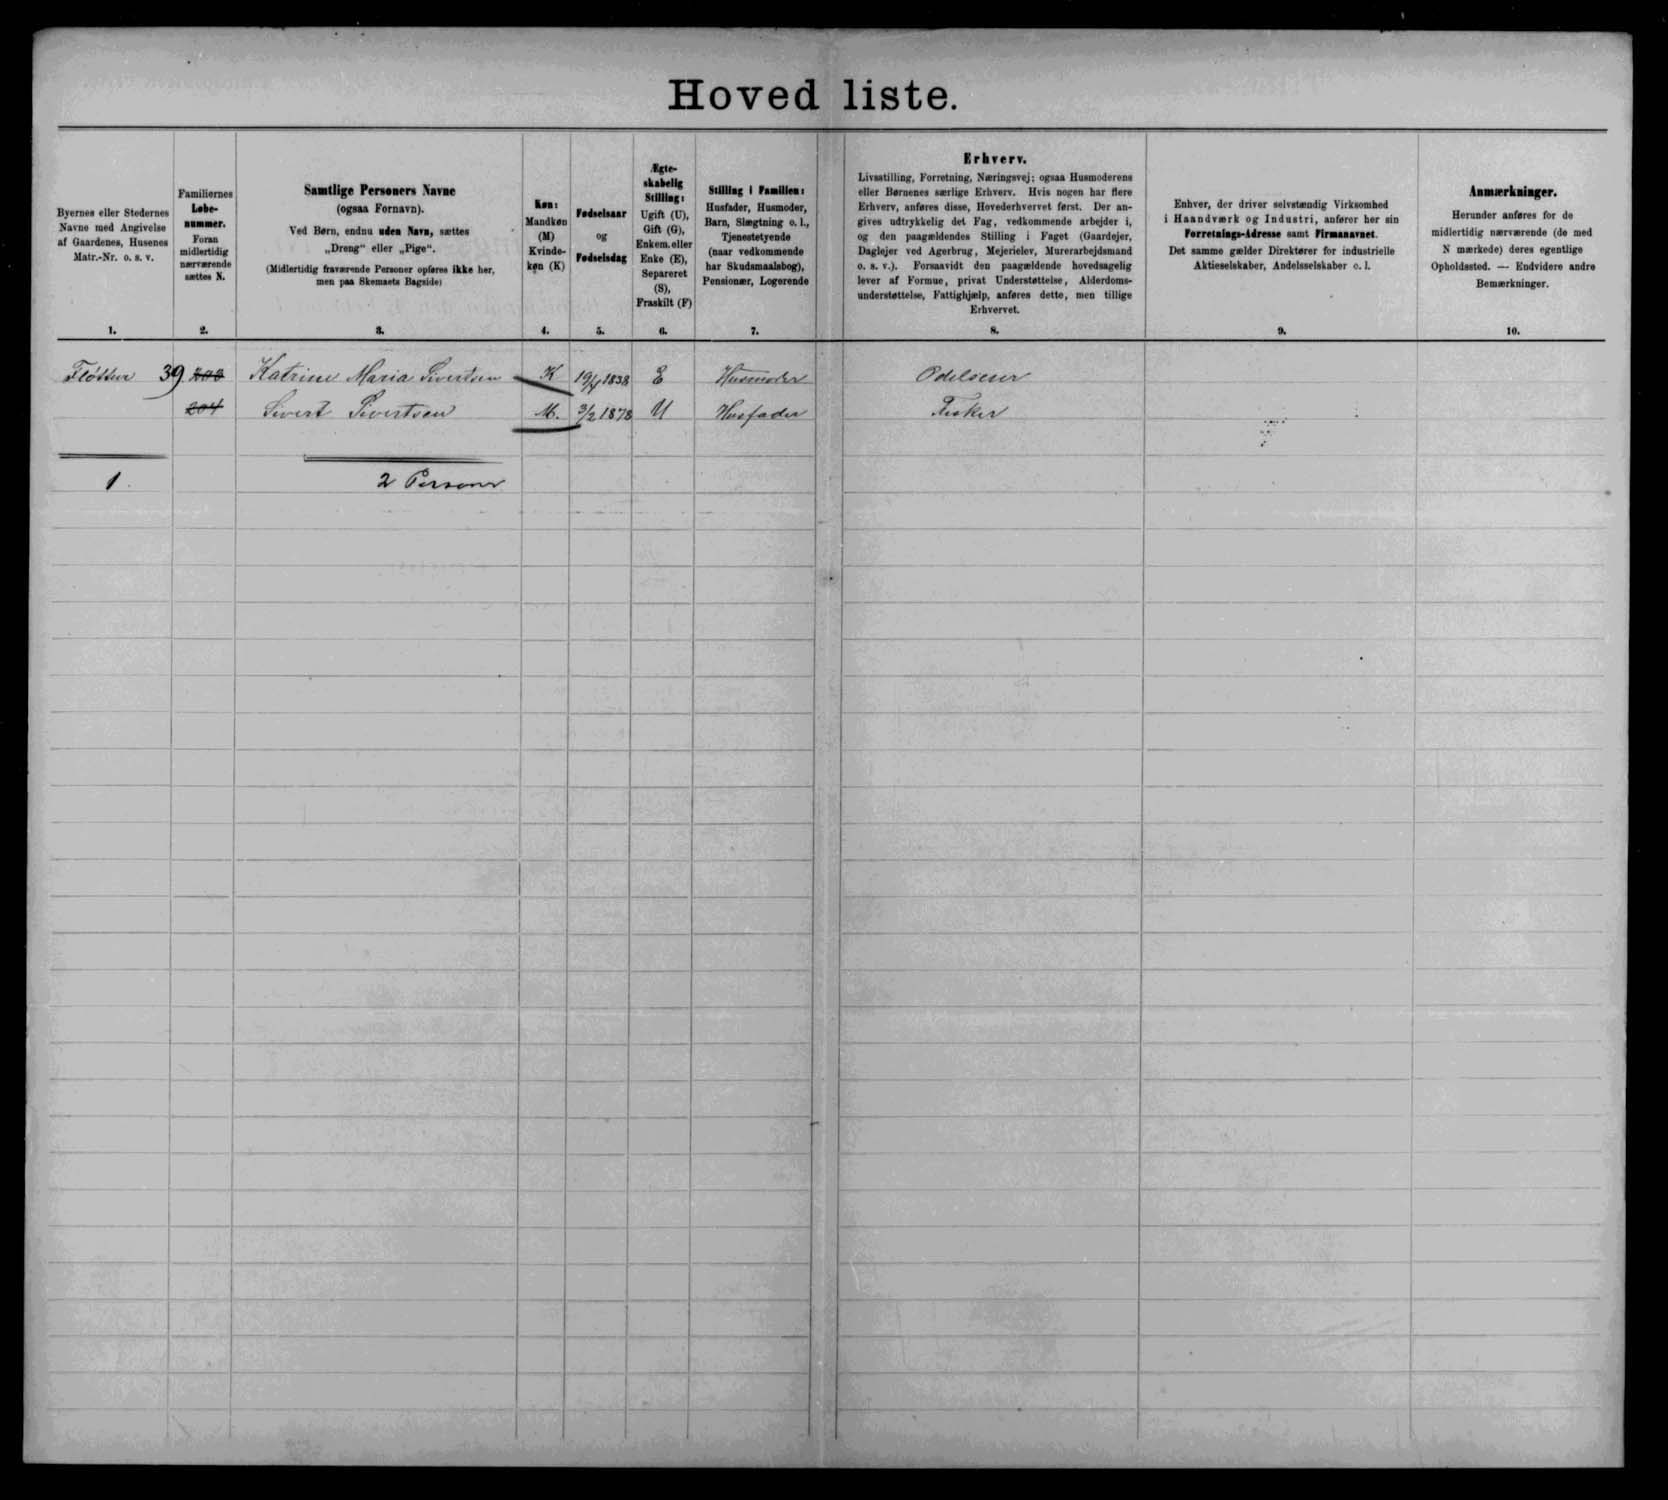 Hoved liste.
Byernes eller Stedernes
Navne med Angivelse
af Gaardenes, Husenes
Matr.-Nr. o. s. v.
1.
Familiernes
Løbe-
nummer.
Foran
midlertidig
nærværende
sættes N.
2.
Samtlige Personers Navne
(ogsaa Fornavn).
Ved Børn, endnu uden Navn, sættes
„Dreng“ eller „Pige“.
(Midlertidig fraværende Personer opføres ikke her,
men paa Skemaets Bagside)
3.
Køn:
Mandkøn
(M)
Kvinde-
køn (K)
4.
Fødselsaar
og
Fødselsdag
5.
Ægte-
skabelig
Stilling:
Ugift (U),
Gift (G),
Enkem. eller
Enke (E),
Separeret
(S),
Fraskilt (F)
6.
Stilling i Familien:
Husfader, Husmoder,
Barn, Slægtning o. l.,
Tjenestetyende
(naar vedkommende
har Skudsmaalsbog),
Pensionær, Logerende
7.
Erhverv.
Livsstilling, Forretning, Næringsvej; ogsaa Husmoderens
eller Børnenes særlige Erhverv. Hvis nogen har flere
Erhverv, anføres disse, Hovederhvervet først. Der an-
gives udtrykkelig det Fag, vedkommende arbejder i,
og den paagældendes Stilling i Faget (Gaardejer,
Daglejer ved Agerbrug, Mejerielev, Murerarbejdsmand
o. s. v.). Forsaavidt den paagældende hovedsagelig
lever af Formue, privat Understøttelse, Alderdoms-
understøttelse, Fattighjælp, anføres dette, men tillige
Erhvervet.
8.
Enhver, der driver selvstændig Virksomhed
i Haandværk og Industri, anfører her sin
Forretnings-Adresse samt Firmanavnet.
Det samme gælder Direktører for industrielle
Aktieselskaber, Andelsselskaber o. l.
9.
Anmærkninger.
Herunder anføres for de
midlertidig nærværende (de med
N mærkede) deres egentlige
Opholdssted. — Endvidere andre
Bemærkninger.
10.
39 Katrine Maria Sivertsen K 19/4 1838 E Husmoder
204 Sivert Sivertsen M. 3/2 1878 U Husfader Fisker
1 2 Personer